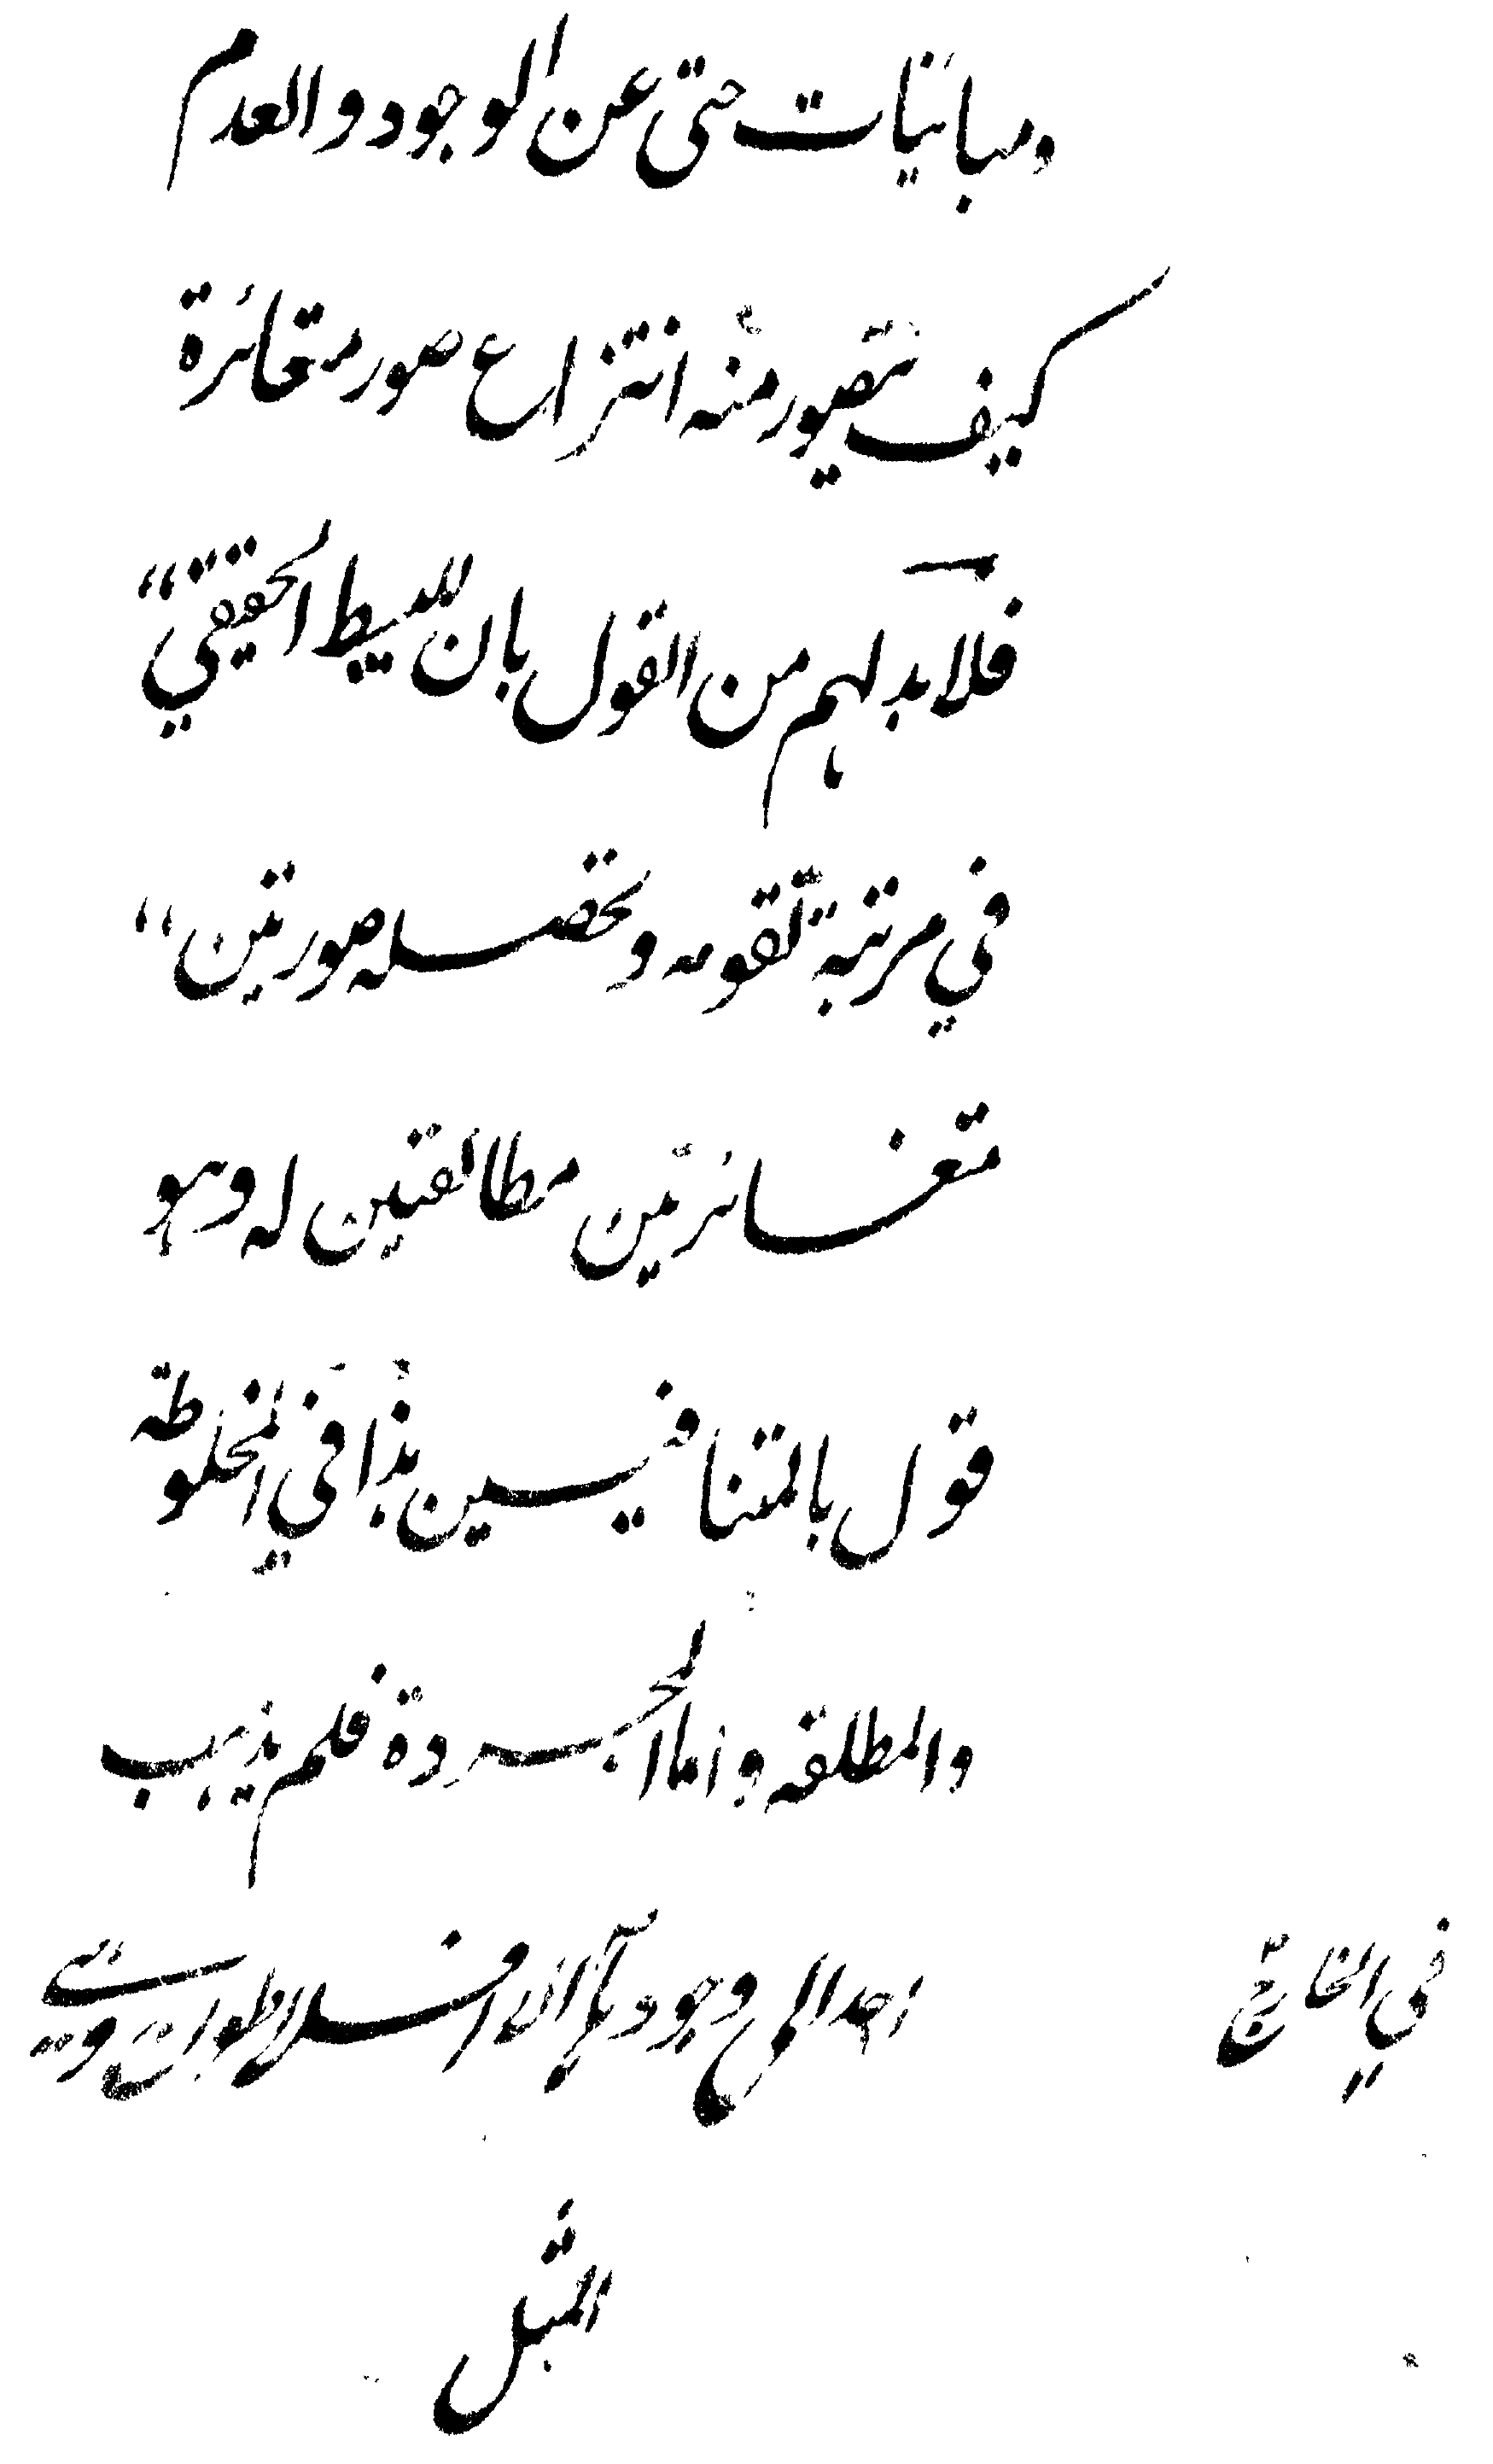 ومباينات حتى عن الوجود والعدم
كيف يتصور منه انتزاع صور متغائرة
فلا بد لهم من القول بان للبسيط الحقيقي
في مرتبة تقومه وتحصله صورتين
متغائرتين مطابقتين له وهو
قول بالمتنافيين هذا في المخلوطة
والمطلقه واما المجردة فلم يذهب
احد الى وجودها الا افلاطون وهي
في الخارج
المثل